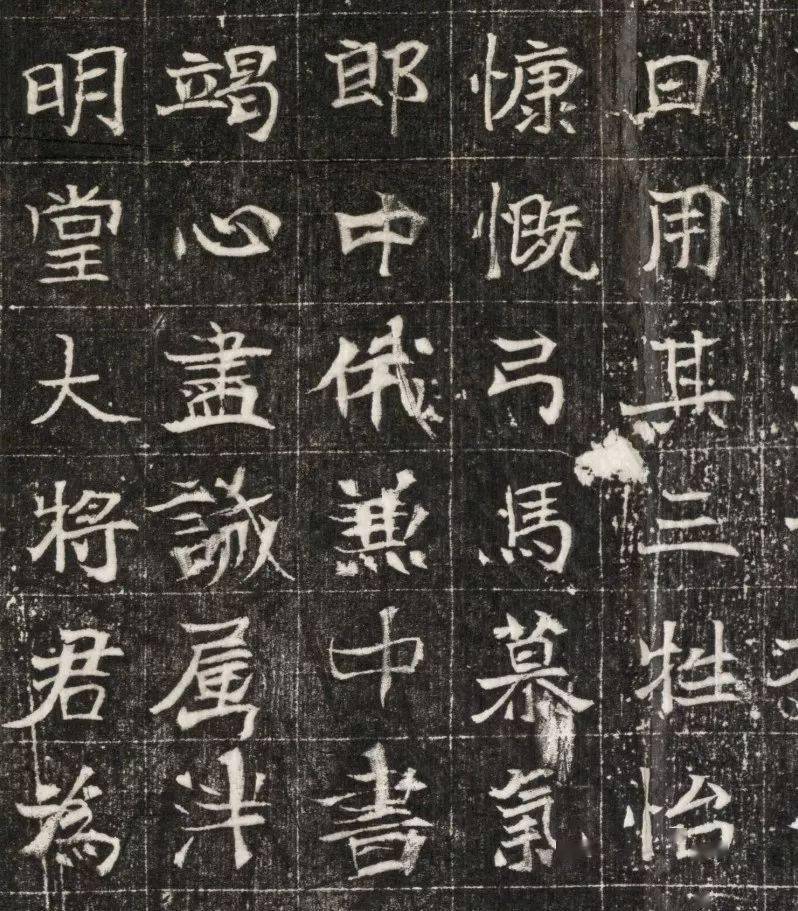 日用其三牲怡
慷慨弓馬慕氣
郎中俄兼中書
竭心盡誠属泮
明堂大將君為